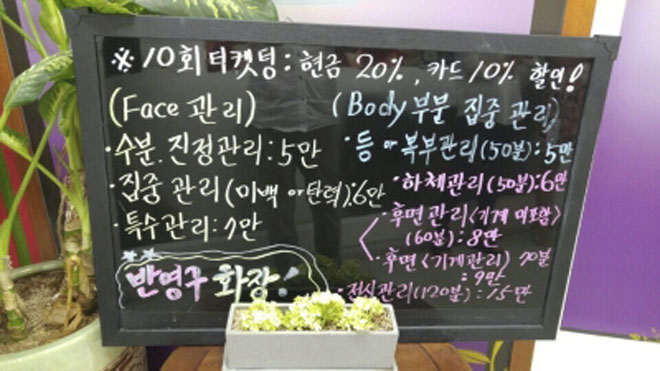 ※ 10회 티켓팅 : 현금 20%, 카드 10% 할인!
(Face 관리)
· 수분. 진정관리 : 5만
· 집중 관리 (미백 or 탄력) : 6만
· 특수관리 : 7만
반영구 화장!
(Body 부분 집중 관리)
· 등 or 복부관리 (50분) : 5만
· 하체관리 (50분) : 6만
· 후면관리 <기계 미포함>
(60분) : 8만
· 후면 <기계관리> 70분
: 9만
· 전신관리 (120분) : 15만